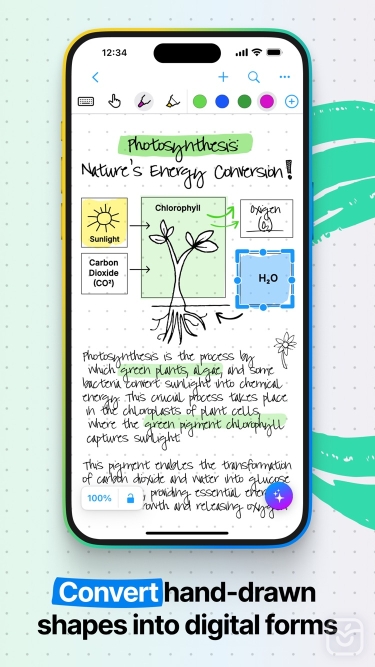 12:34
Photosynthesis:
Nature's Energy Conversion!
Sunlight
Chlorophyll
Oxigen
O₂
Carbon
Dioxide
(CO²)
H₂O
Photosynthesis is the process by
which green plants, algae, and some
bacteria convert sunlight into chemical
energy. This crucial process takes place
in the chloroplasts of plant cells,
where the green pigment chlorophyll
captures sunlight.
This pigment enables the transformation
of carbon dioxide and water into glucose
100%
providing essential
and releasing
Convert hand-drawn
shapes into digital forms